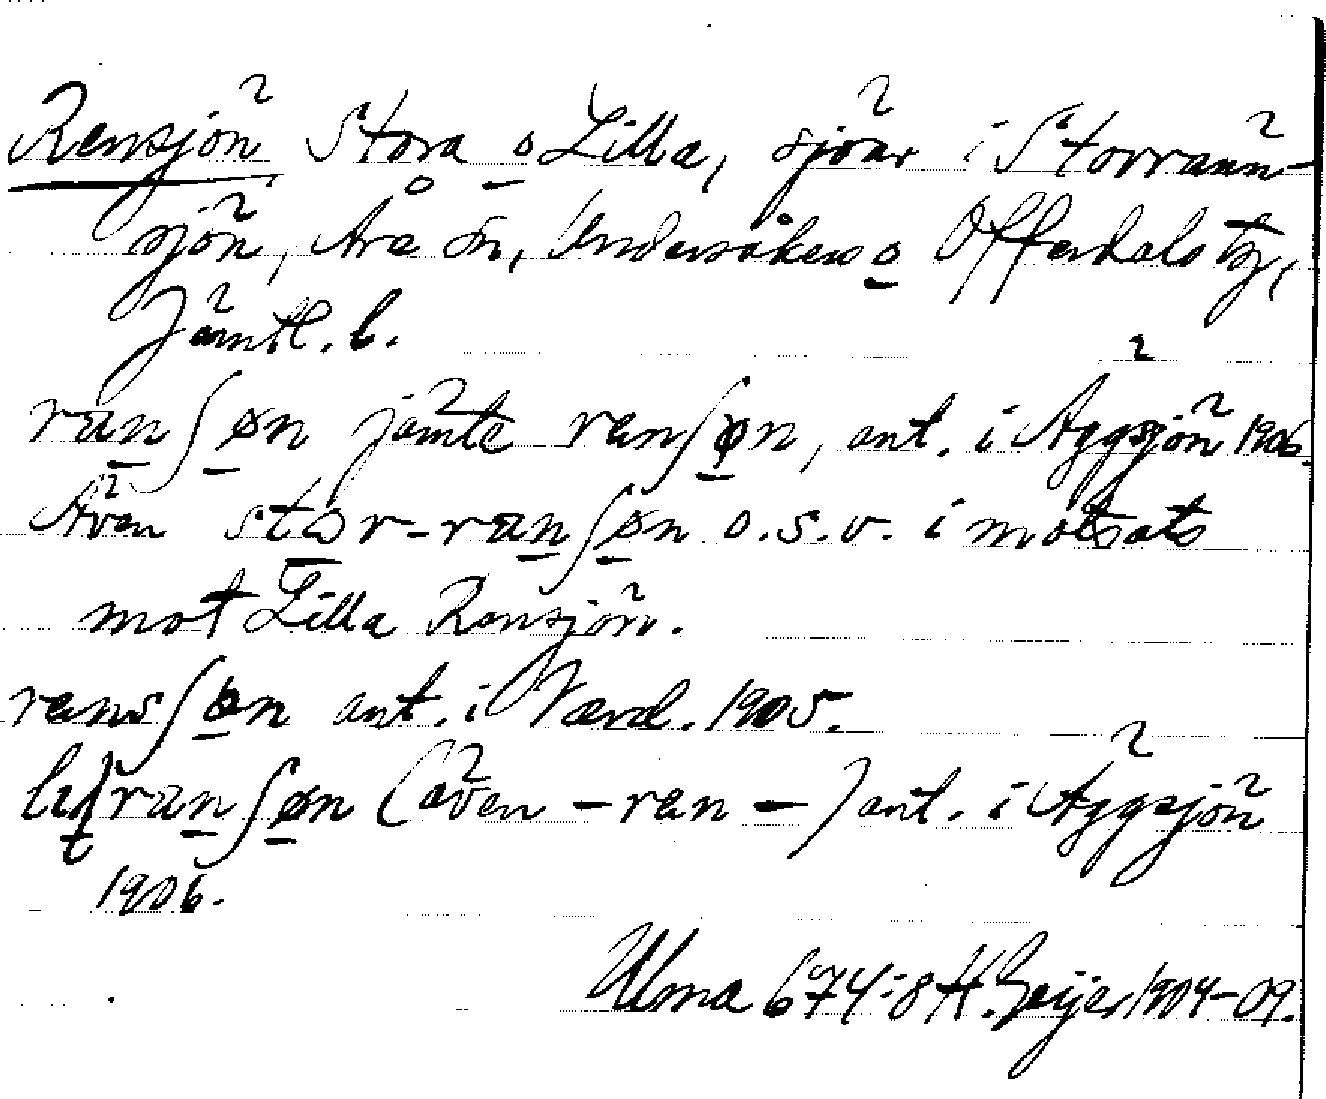 Rensjön Stora o Lilla, sjöar i Storrann-
sjön, Åre sn, Undersåkers o Offerdals tg,
Jämtl. l.
ranʃøn jämte renʃøn, ant. i Äggsjön 1906.
Även stor-ranʃøn o.s.v. i motsats
mot Lilla Rensjön.
rensʃøn ant. i Værd. 1905.
ranʃøn (även - ren -) ant. i Äggsjön
1906.
Ulma 674:8 H. Geijer 1904-09.